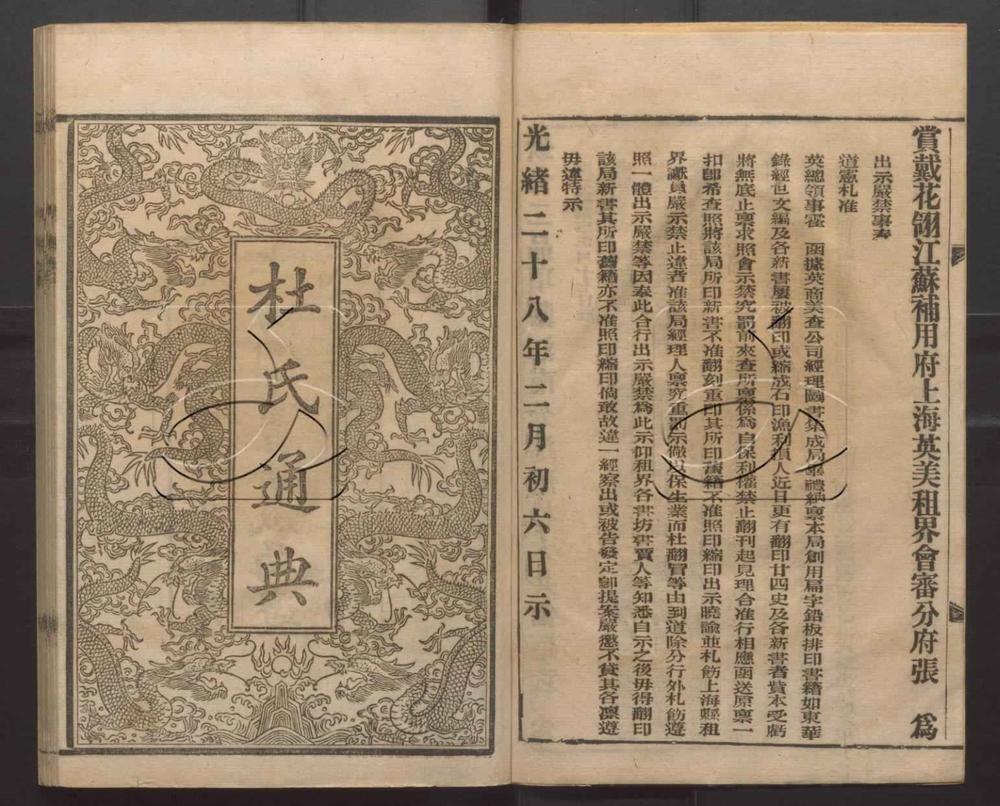 賞戴花翎江蘇補用府上海英美租界會審分府張　為
出示嚴禁事奉
道憲札准
英總領事霍　函據英商美查公司經理圖書集成局畢禮納稟本局創用扁字鉛板排印書籍如東華
錄經世文編及各新書屢被翻印或縮成石印漁利損人近日更有翻印廿四史及各新書者貲本受虧
將無底止稟求照會示禁究罰前來查所稟係為自保利權禁止翻刊起見理合准行相應函送原稟一
扣卽希查照將該局所印新書不准翻刻重印其所印舊籍不准照印縮印出示曉諭並札飭上海縣租
界讞員嚴示禁止違者准該局經理人稟究重罰示儆以保生業而杜翻冒等由到道除分行外札飭遵
照一體出示嚴禁等因奉此合行出示嚴禁為此示仰租界各書坊書賈人等知悉自示之後毋得翻印
該局新書其所印舊籍亦不准照印縮印倘敢故違一經察出或被告發定卽提案嚴懲不貸其各凜遵
毋違特示
光緒二十八年二月初六日示
杜氏通典